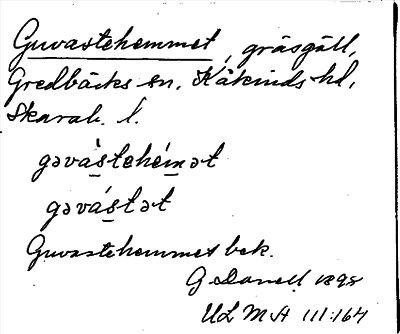 Guvastehemmet, gräsgäll,
Gredbäcks sn, Kåkinds hd,
Skarab. l.
gəvàstehémət
gəvástət
Guvastehemmet bek.
G Danell 1898
ULMA 111:164